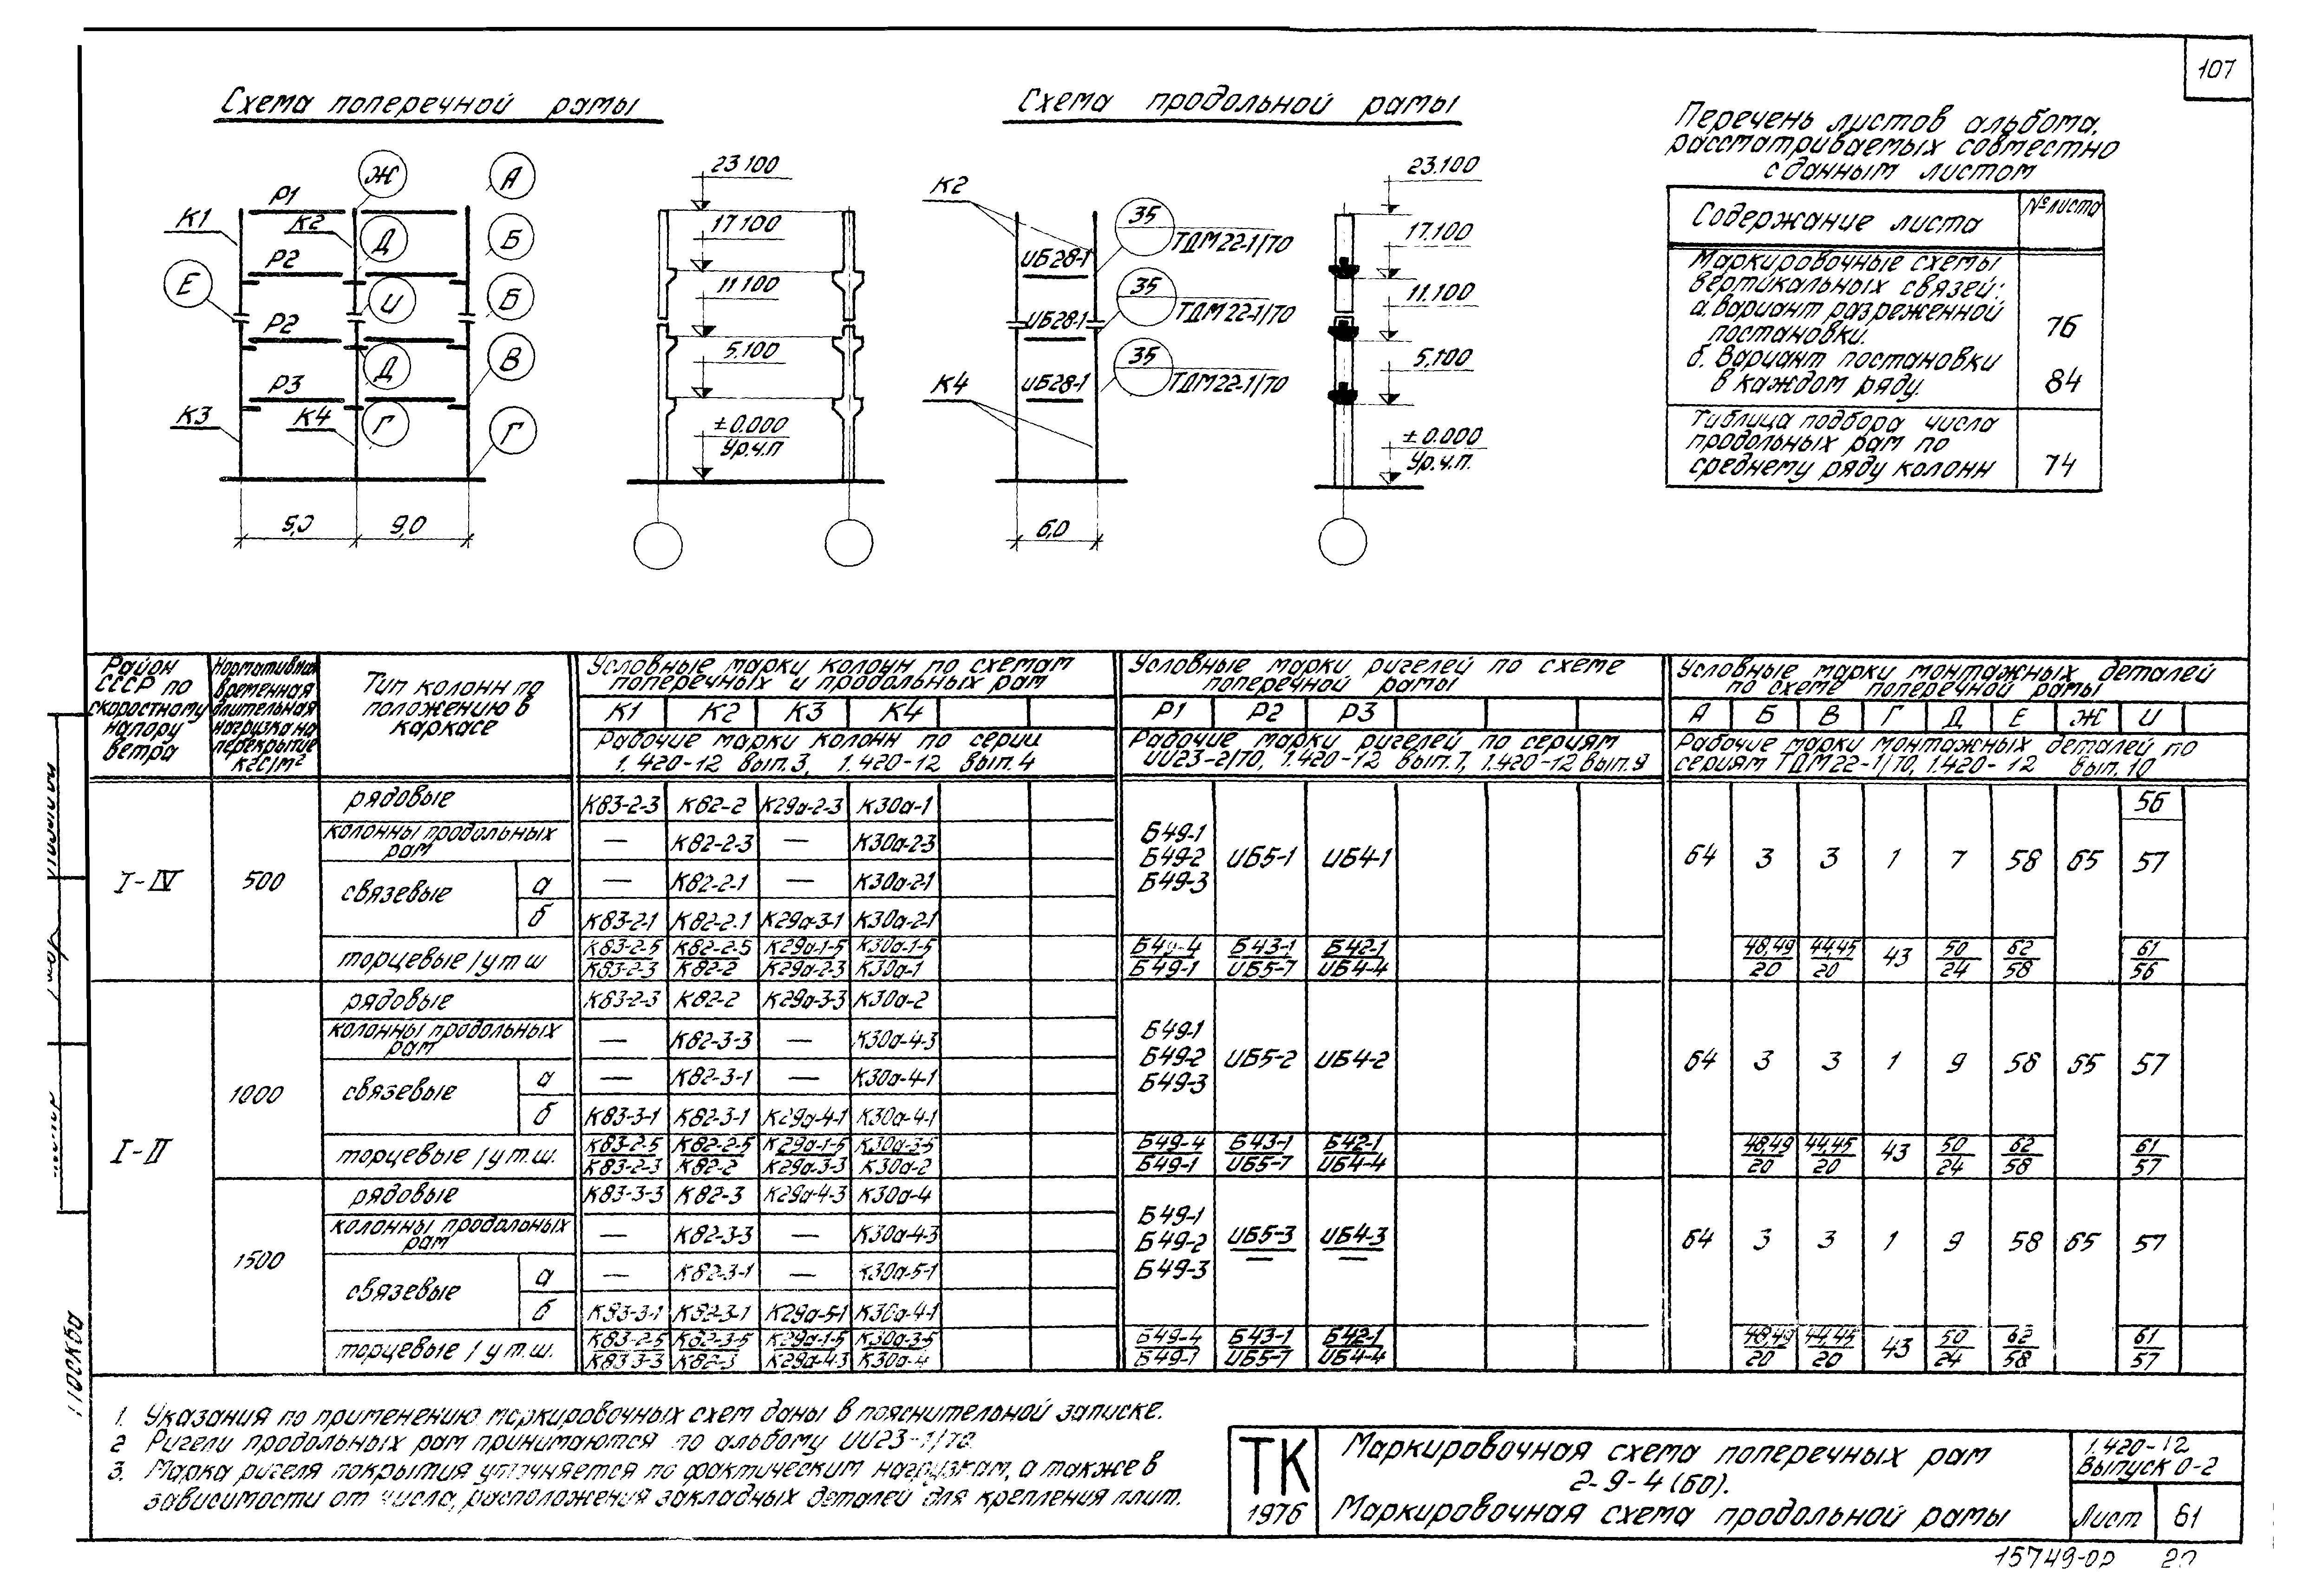 107
Схема поперечной рамы
Схема продольной рамы
Перечень листов альбома,
рассматриваемых совместно
с данным листом
Содержание листа
№ листа
Маркировочные схемы
вертикальных связей:
а. вариант разреженной
постановки.
76
б. вариант постановки
в каждом ряду.
84
Таблица подбора числа
продольных рам по
среднему ряду колонн
74
К1 Р1 К2 Ж А
Р2 Д Б
Е И Б
Р2 Д В
Р3 К3 К4 Г Г
9,0
23.100
17.100
11.100
5.100
±0.000
Ур.ч.п
К2
ИБ28-1 35 ТДМ22-1/70
ИБ28-1 35 ТДМ22-1/70
ИБ28-1 35 ТДМ22-1/70
К4
6,0
23.100
17.100
11.100
5,100
±0.000
Ур.ч.п.
Район СССР по скоростному напору ветра
Нормативная временная длительная нагрузка на перекрытие кгс/м²
Тип колонн по положению в каркасе
Условные марки колонн по схемам
поперечных и продольных рам
К1 К2 К3 К4
Рабочие марки колонн по серии
1.420-12 вып.3, 1.420-12 вып.4
Условные марки ригелей по схеме
поперечной рамы
Р1 Р2 Р3
Рабочие марки ригелей по сериям
ИИ23-2/70, 1.420-12 вып.7, 1.420-12 вып.9
Условные марки монтажных деталей
по схеме поперечной рамы
А Б В Г Д Е Ж И
Рабочие марки монтажных деталей по
сериям ТДМ22-1/70, 1.420-12 вып.10
I-IV 500
рядовые К83-2-3 К82-2 К29а-2-3 К30а-1
56
колонны продольных рам — К82-2-3 — К30а-2-3
связевые а — К82-2-1 — К30а-2-1
б К83-2-1 К82-2.1 К29а-3-1 К30а-2-1
Б49-1
Б49-2 ИБ5-1 ИБ4-1
Б49-3
64 3 3 1 7 58 65 57
торцевые/у т ш К83-2-5 К82-2-5 К29а-1-5 К30а-1-5 Б49-4 Б43-1 Б42-1 48,49 44,45 43 50 62 61
К83-2-3 К82-2 К29а-2-3 К30а-1 Б49-1 ИБ5-7 ИБ4-4 20 20 24 58 56
I-II 1000
рядовые К83-2-3 К82-2 К29а-3-3 К30а-2
колонны продольных рам — К82-3-3 — К30а-4-3
связевые а — К82-3-1 — К30а-4-1
б К83-3-1 К82-3-1 К29а-4-1 К30а-4-1
Б49-1
Б49-2 ИБ5-2 ИБ4-2
Б49-3
64 3 3 1 9 58 65 57
торцевые/у т.ш. К83-2-5 К82-2-5 К29а-1-5 К30а-3-5 Б49-4 Б43-1 Б42-1 48,49 44,45 43 50 62 61
К83-2-3 К82-2 К29а-3-3 К30а-2 Б49-1 ИБ5-7 ИБ4-4 20 20 24 58 57
1500
рядовые К83-3-3 К82-3 К29а-4-3 К30а-4
колонны продольных рам — К82-3-3 — К30а-4-3
связевые а — К82-3-1 — К30а-5-1
б К83-3-1 К82-3-1 К29а-5-1 К30а-4-1
Б49-1
Б49-2 ИБ5-3 ИБ4-3
Б49-3 — —
64 3 3 1 9 58 65 57
торцевые/у т.ш. К83-2-5 К82-3-5 К29а-1-5 К30а-3-5 Б49-4 Б43-1 Б42-1 48,49 44,45 43 50 62 61
К83 3-3 К82-3 К29а-4-3 К30а-4 Б49-1 ИБ5-7 ИБ4-4 20 20 24 58 57
1. Указания по применению маркировочных схем даны в пояснительной записке.
2 Ригели продольных рам принимаются по альбому ИИ23-1/70.
3. Марка ригеля покрытия уточняется по фактическим нагрузкам, а также в
зависимости от числа, расположения закладных деталей для крепления плит.
ТК
1976
Маркировочная схема поперечных рам
2-9-4 (60).
Маркировочная схема продольной рамы
1.420-12
Выпуск 0-2
Лист 61
15749-02 20
Москва